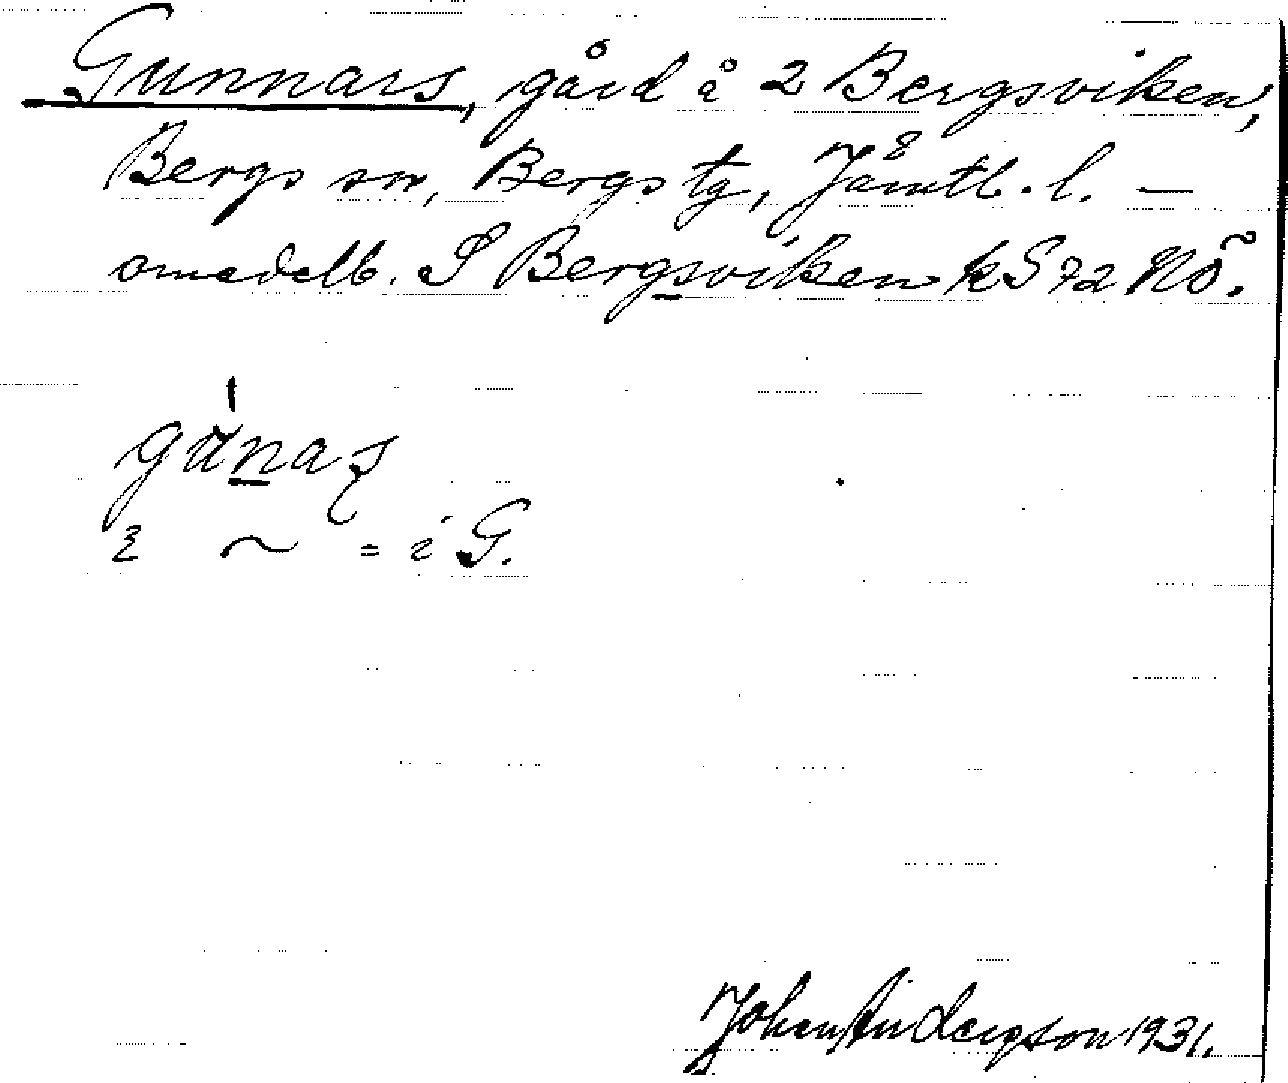 Gunnars, gård å 2 Bergsviken,
Bergs sn, Bergs tg, Jämtl. l. —
omedelb. S Bergsviken k S 72 NÖ.
gúnaʂ
i ~ = i G.
Johan Anderson 1931.